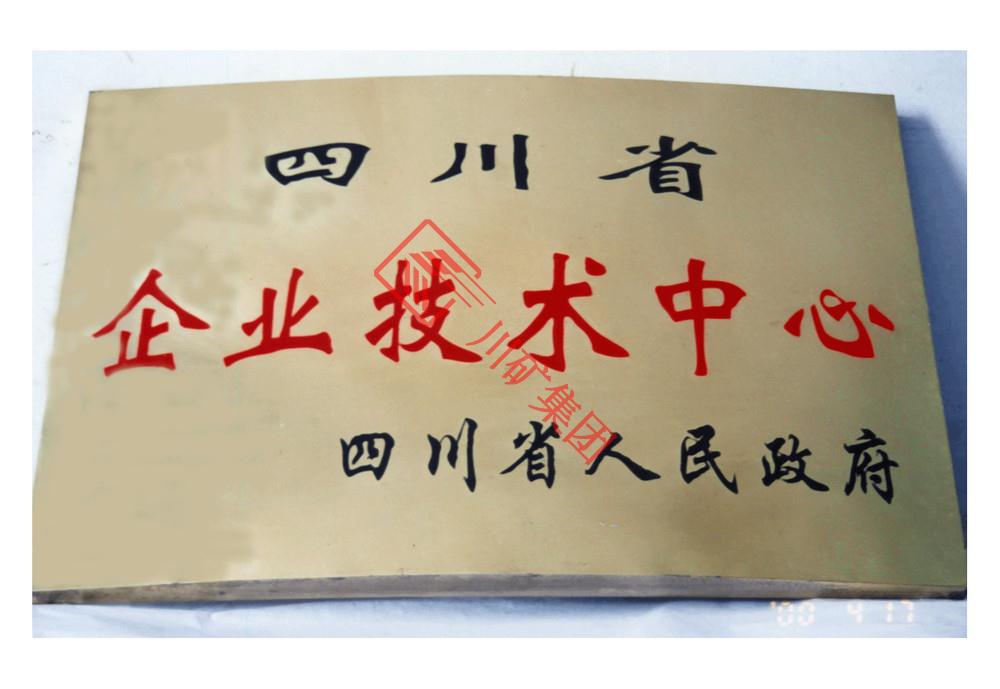 四川省
企业技术中心
川矿集团
四川省人民政府
'00 4 17